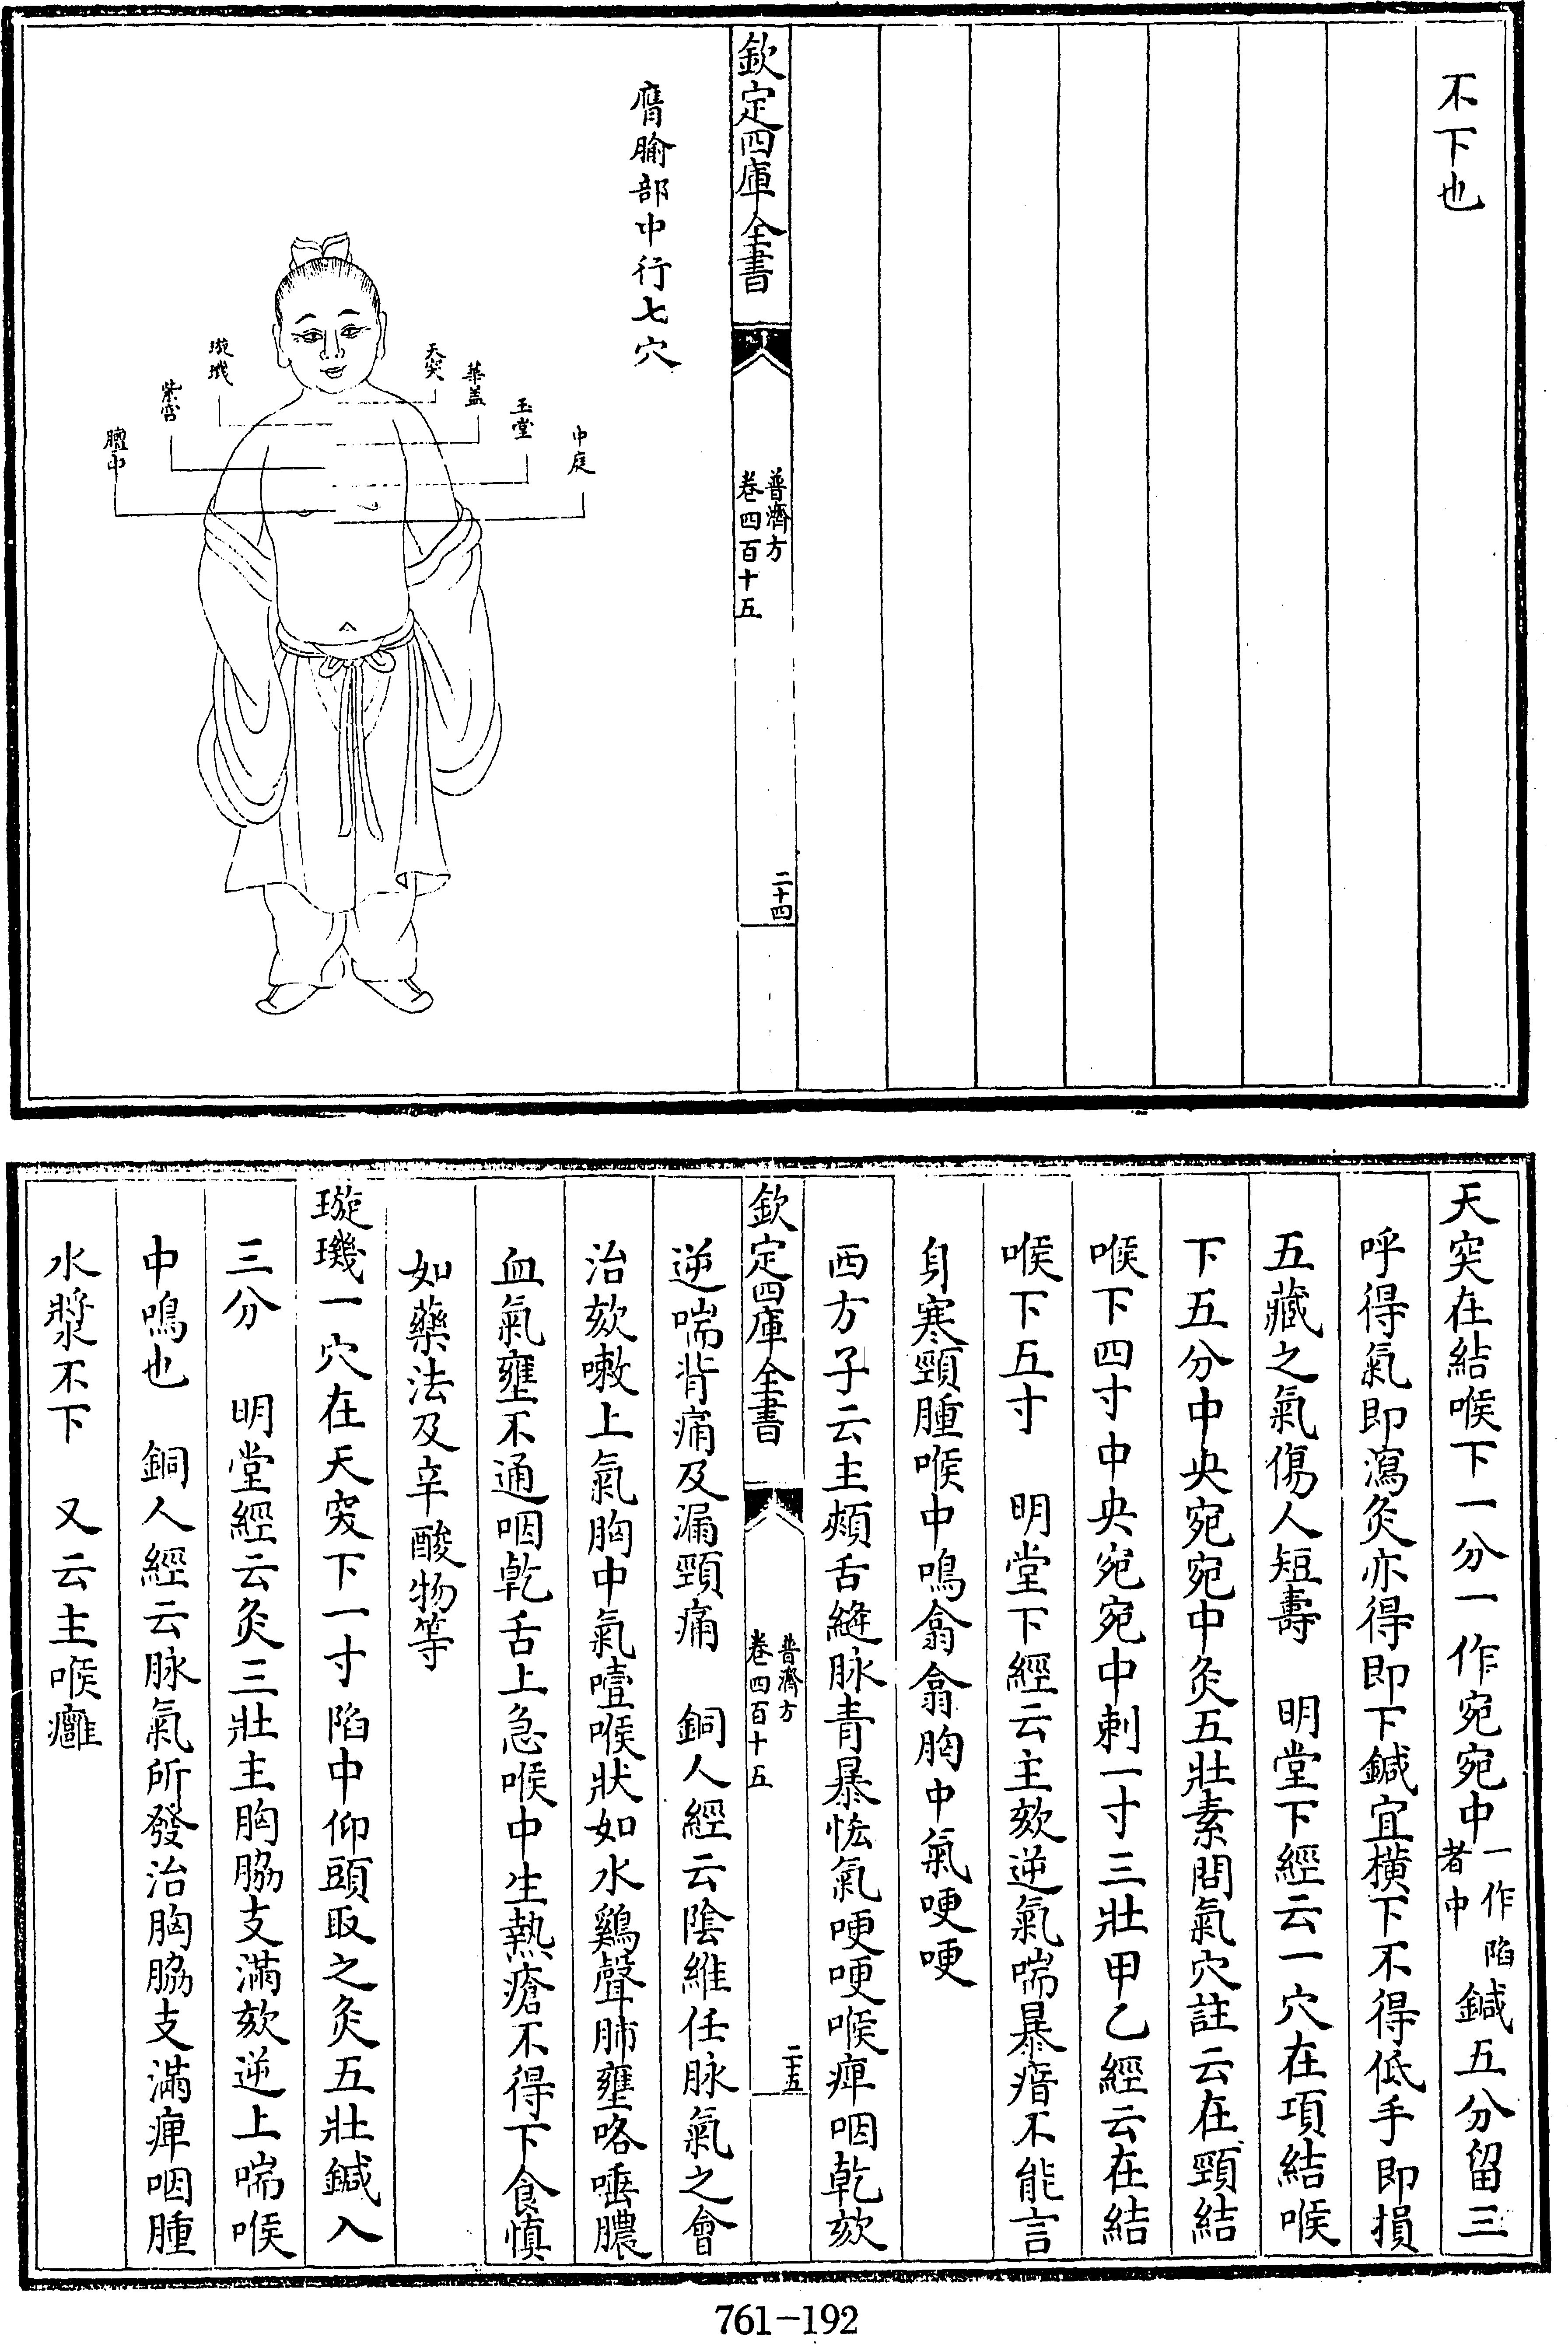 不下也
欽定四庫全書
普濟方
卷四百十五
二十四
膺腧部中行七穴
天突
華蓋
玉堂
中庭
璇璣
紫宮
膻中
天突在結喉下一分一作宛宛中一作陷者中鍼五分留三
呼得氣即瀉灸亦得即下鍼宜橫下不得低手即損
五藏之氣傷人短壽　明堂下經云一穴在項結喉
下五分中央宛宛中灸五壯素問氣穴註云在頸結
喉下四寸中央宛宛中刺一寸三壯甲乙經云在結
喉下五寸　明堂下經云主欬逆氣喘暴瘖不能言
身寒頸腫喉中鳴翕翕胸中氣哽哽
西方子云主頰舌縫脉青暴怴氣哽哽喉痺咽乾欬
欽定四庫全書
普濟方
卷四百十五
二十五
逆喘背痛及漏頸痛　銅人經云陰維任脉氣之會
治欬嗽上氣胸中氣噎喉狀如水鷄聲肺壅咯唾膿
血氣壅不通咽乾舌上急喉中生熱瘡不得下食慎
如藥法及辛酸物等
璇璣一穴在天突下一寸陷中仰頭取之灸五壯鍼入
三分　明堂經云灸三壯主胸脇支滿欬逆上喘喉
中鳴也　銅人經云脉氣所發治胸脇支滿痺咽腫
水漿不下　又云主喉癰
761-192